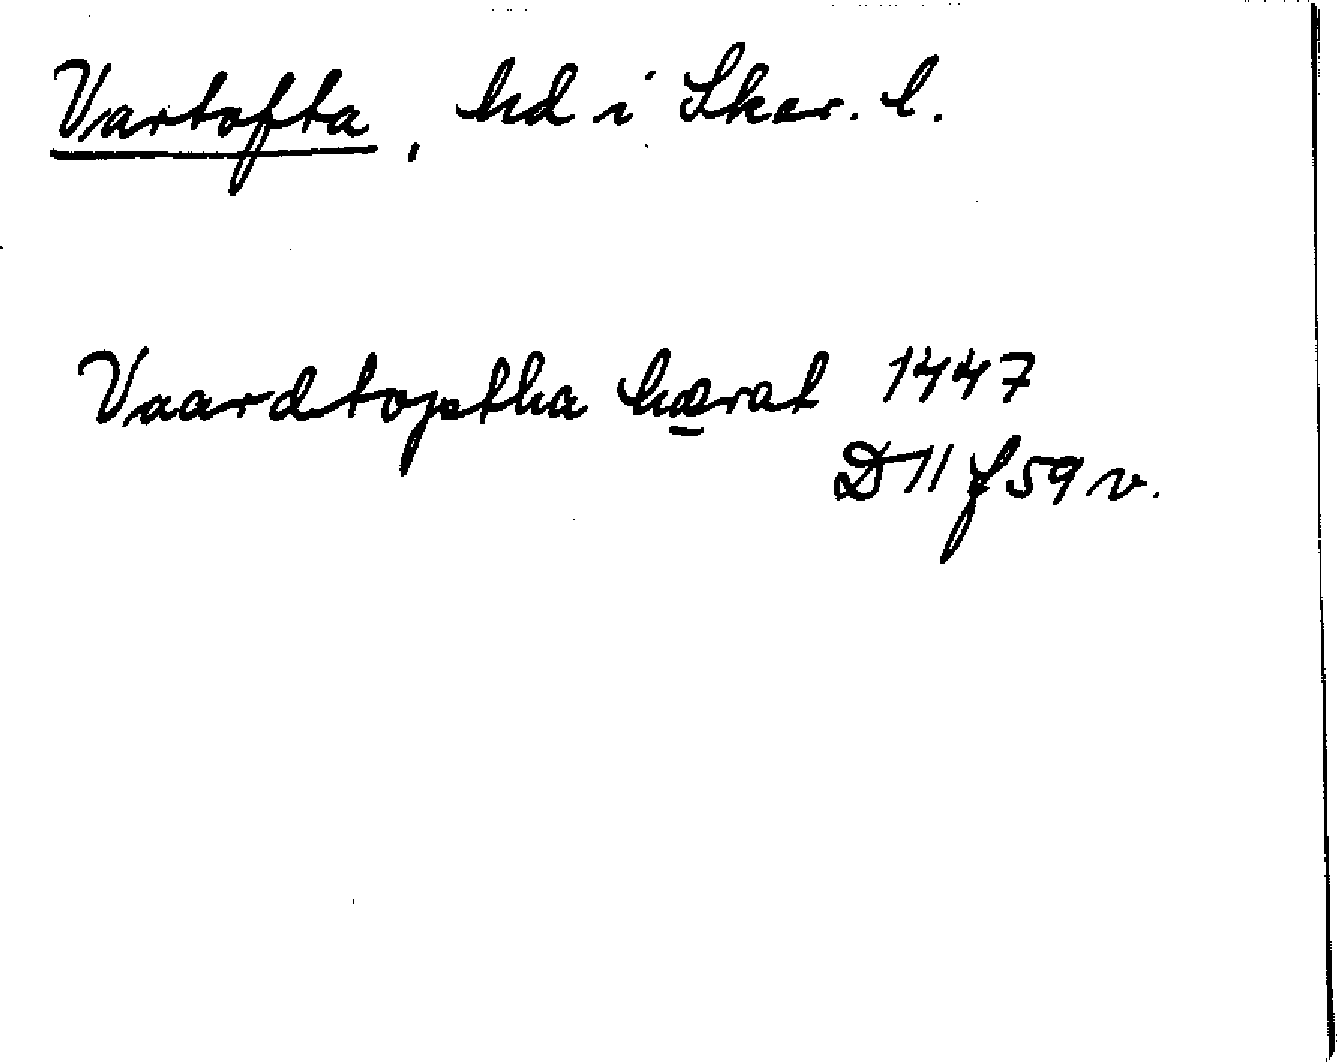 Vartofta, hd i Skar. l.
Vaardtoptha hærat 1447
D 11 f 59 v.